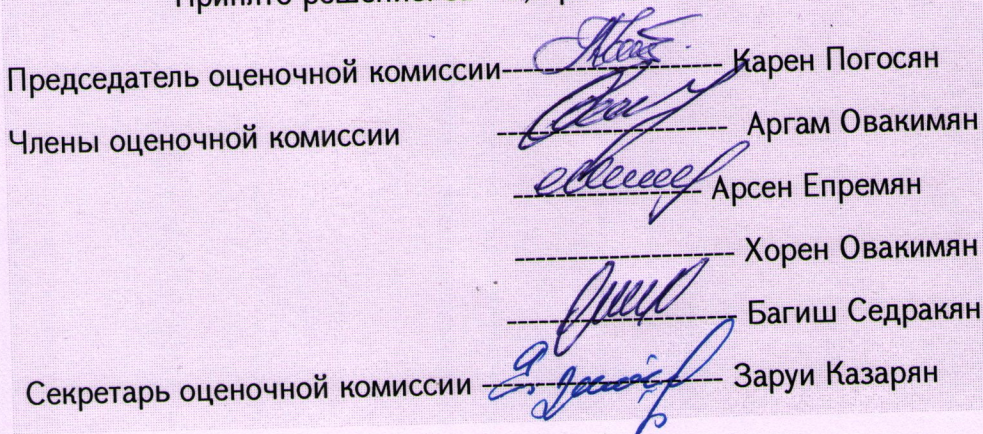 Председатель оценочной комиссии---------------------- Карен Погосян
Члены оценочной комиссии ----------------------- Аргам Овакимян
------------------- Арсен Епремян
---------------------- Хорен Овакимян
----------------------- Багиш Седракян
Секретарь оценочной комиссии ------------------------ Заруи Казарян